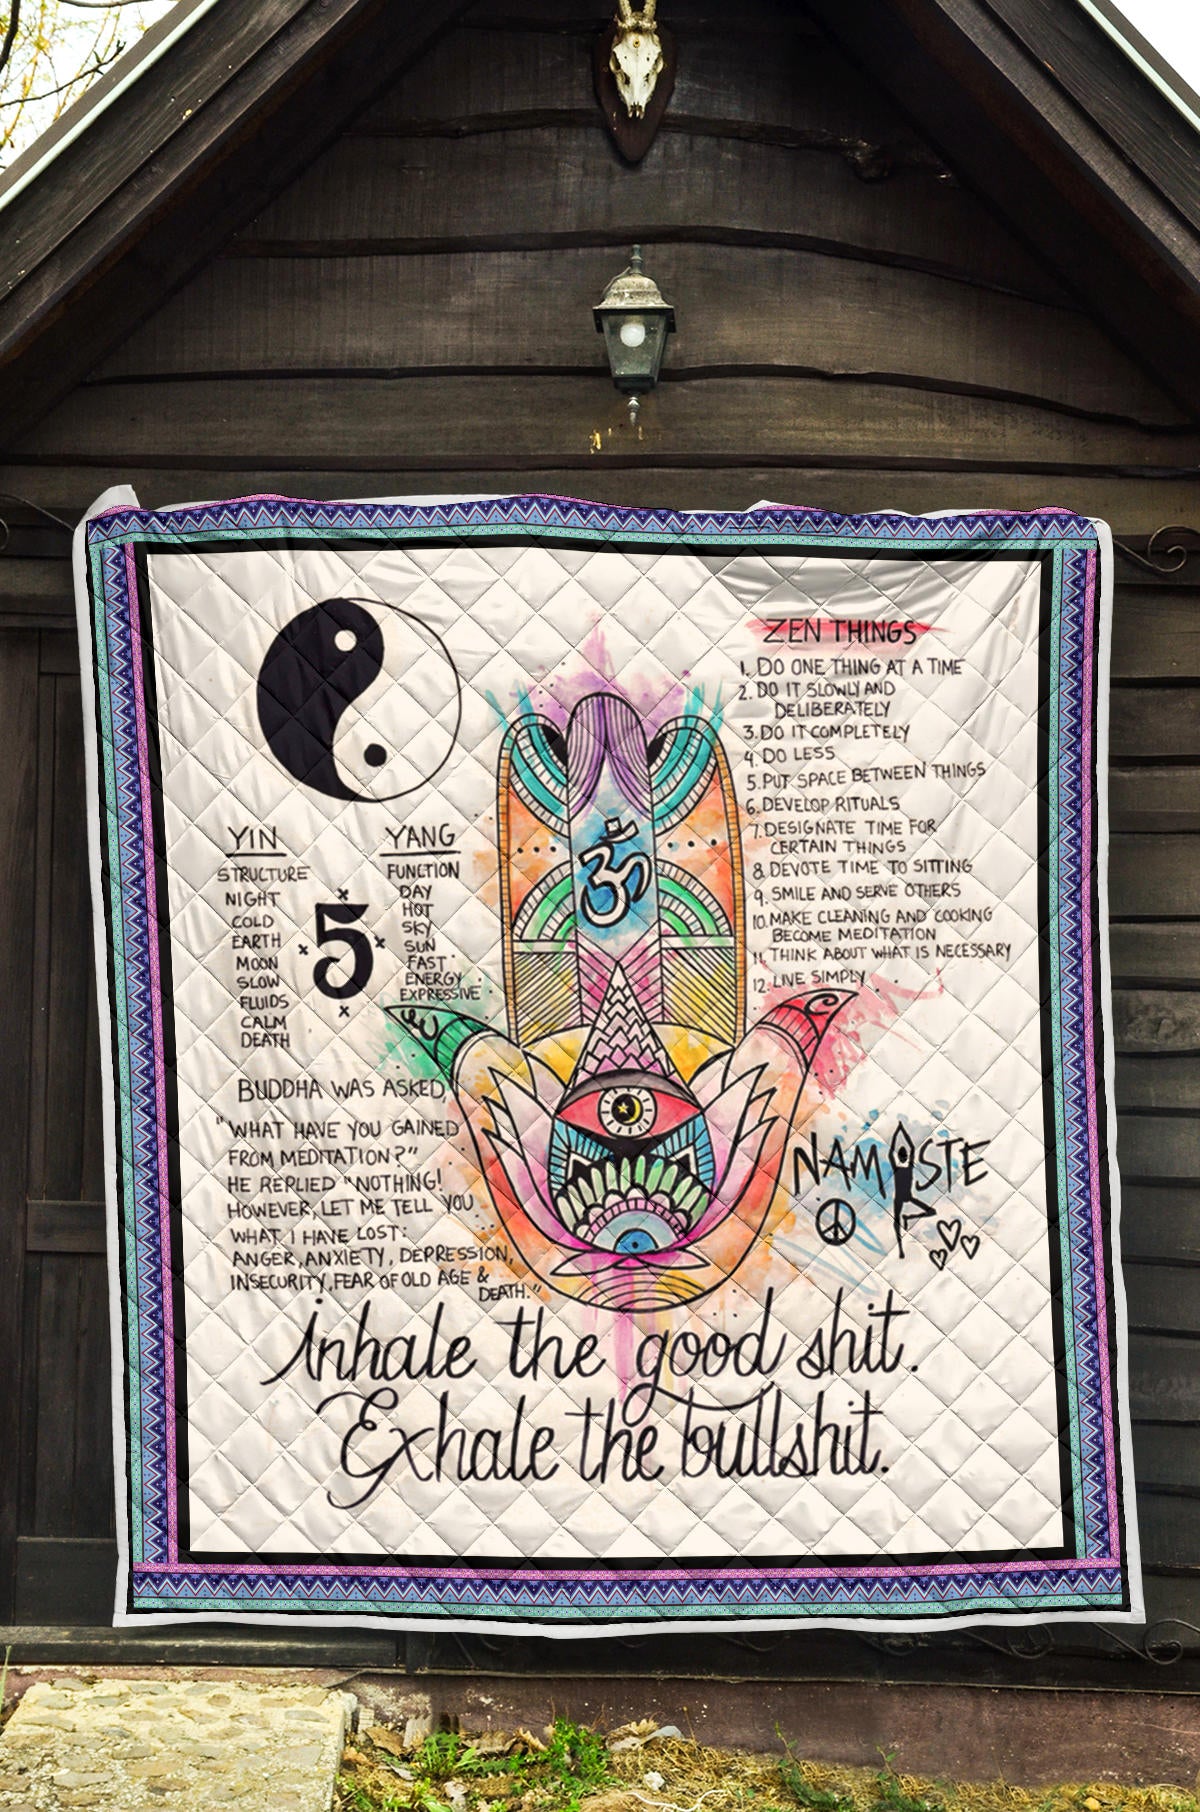 YIN
STRUCTURE
NIGHT
COLD
EARTH
MOON
SLOW
FLUIDS
CALM
DEATH
5
YANG
FUNCTION
DAY
HOT
SKY
SUN
FAST
ENERGY
EXPRESSIVE
BUDDHA WAS ASKED,
"WHAT HAVE YOU GAINED
FROM MEDITATION?"
HE REPLIED "NOTHING!
HOWEVER, LET ME TELL YOU
WHAT I HAVE LOST:
ANGER, ANXIETY, DEPRESSION,
INSECURITY, FEAR OF OLD AGE &
DEATH."
ॐ
ZEN THINGS
1. DO ONE THING AT A TIME
2. DO IT SLOWLY AND
DELIBERATELY
3. DO IT COMPLETELY
4. DO LESS
5. PUT SPACE BETWEEN THINGS
6. DEVELOP RITUALS
7. DESIGNATE TIME FOR
CERTAIN THINGS
8. DEVOTE TIME TO SITTING
9. SMILE AND SERVE OTHERS
10. MAKE CLEANING AND COOKING
BECOME MEDITATION
11. THINK ABOUT WHAT IS NECESSARY
12. LIVE SIMPLY
NAMASTE
inhale the good shit.
Exhale the bullshit.